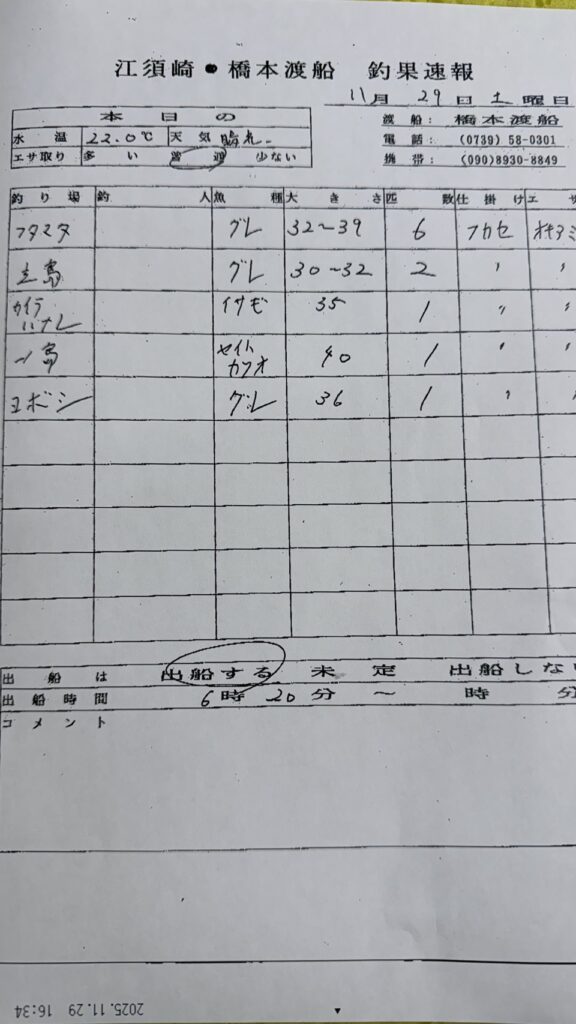 江須崎・橋本渡船 釣果速報
11月 29日 土曜日
本日の
水温 22.0℃ 天気
エサ取り 多い 普通 少ない
渡船: 橋本渡船
電話: (0739) 58-0301
携帯: (090)8930-8849
釣り場 釣人 魚種 大きさ 匹数 仕掛け エサ
フタマタ グレ 32〜39 6 フカセ オキアミ
立島 グレ 30〜32 2 〃 〃
カイラハナレ イサギ 35 1 〃 〃
島 セイトカツオ 40 1 〃 〃
エボシ グレ 36 1 〃 〃
出船は 出船する 未定 出船しない
出船時間 6時 20分 〜 時 分
コメント
2025.11.29 16:34